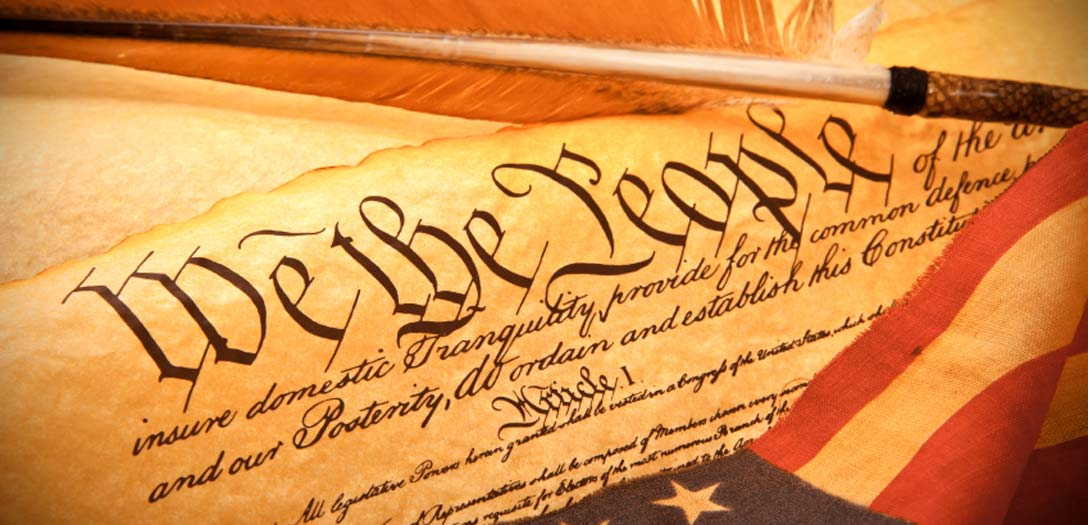 We the People of the Un
insure domestic Tranquility, provide for the common defence,
and our Posterity, do ordain and establish this Constitu
Article I.
All legislative Powers herein granted shall be vested in a Congress of the United States, which
Representatives shall be composed of Members chosen every secon
requisite for Electors of the most numerous Branch of the